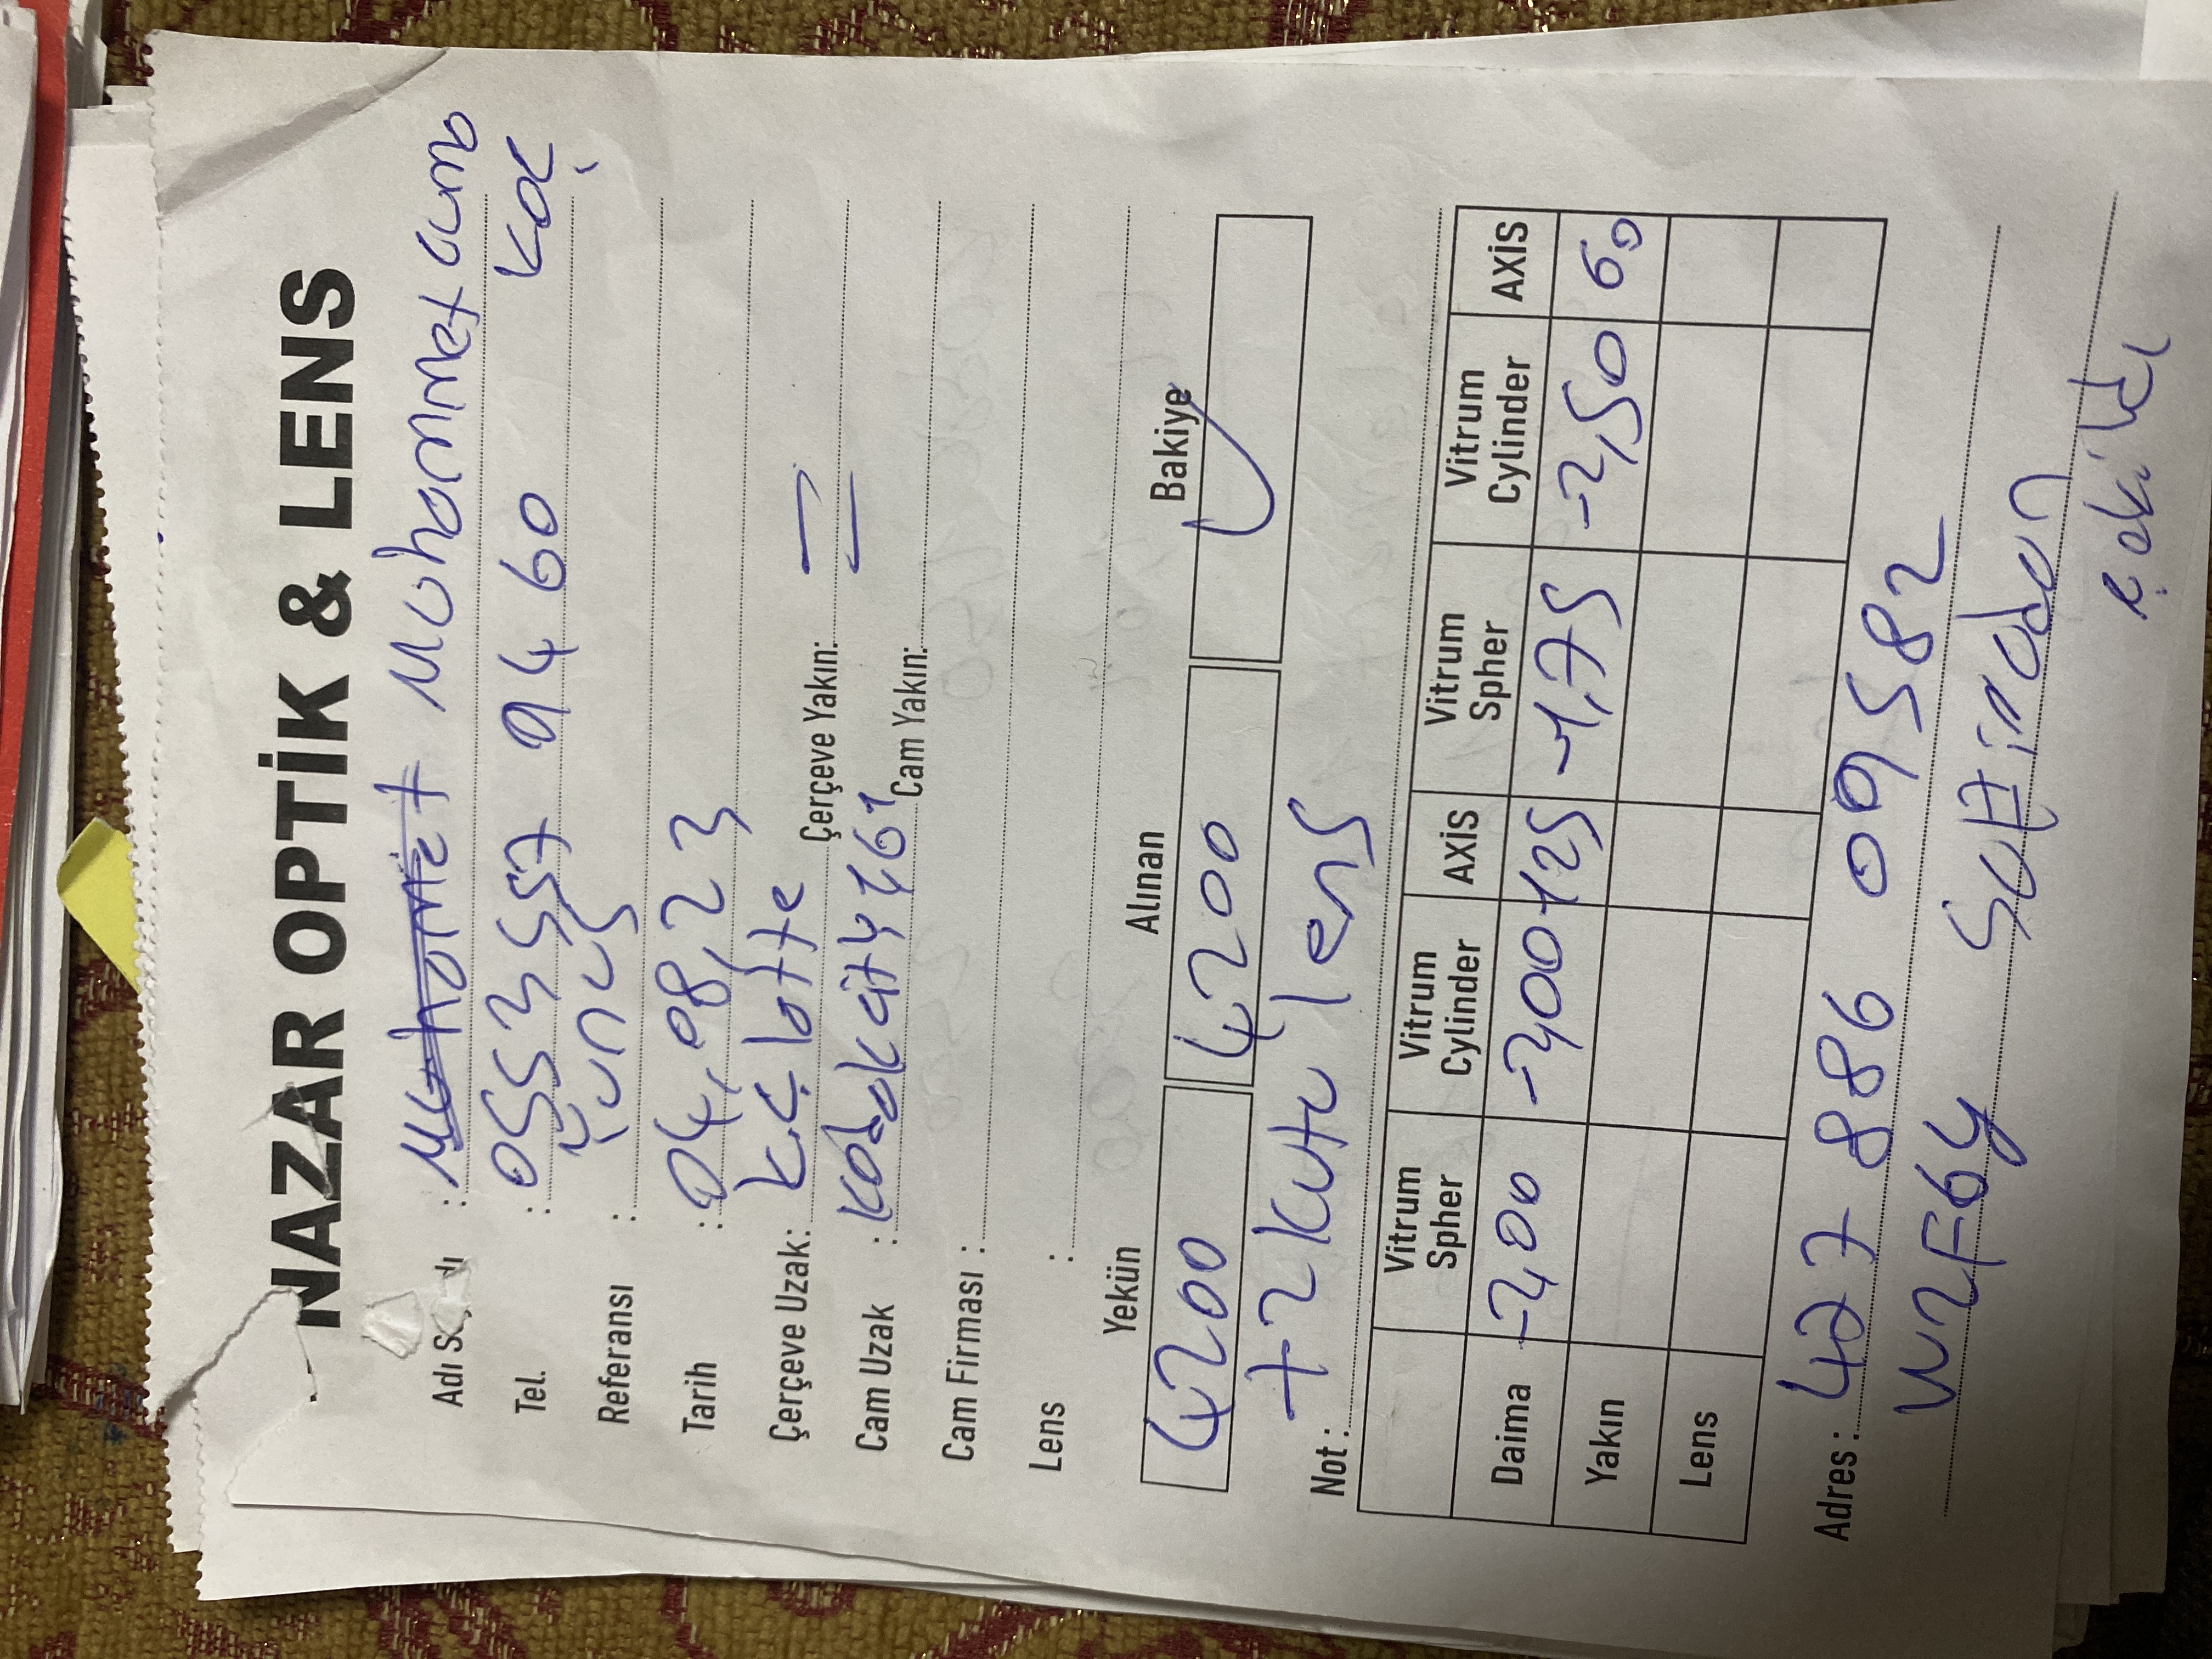 NAZAR OPTİK & LENS
Adı S dı : Muhammet cuma
Tel. : 0553 557 94 60 KOÇ
Referansı : Yunus
Tarih : 04,08,23
Çerçeve Uzak: K.Ç lotte Çerçeve Yakın: =
Cam Uzak : Kodak city 1,61 Cam Yakın:
Cam Firması :
Lens :
Yekün Alınan Bakiye
4200 4200
Not : +2 Kutu lens
Vitrum Spher Vitrum Cylinder AXİS Vitrum Spher Vitrum Cylinder AXİS
Daima -2,00 -2,00 125 -1,75 -2,50 60
Yakın
Lens
Adres : 427 886 09582
W2F6Y
çekildi